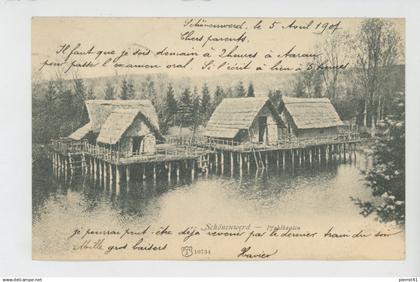 Schönenwerd, le 5 Avril 1907
Chers parents,
Il faut que je sois demain à 2 heures à Aarau
pour passer l'examen oral. S'il écrit à lieu à 5 heures
je pourrai peut-être déjà revenir par le dernier train du soir
Mille gros baisers
Xavier
Schönenwerd — Pfahlbauten
10734